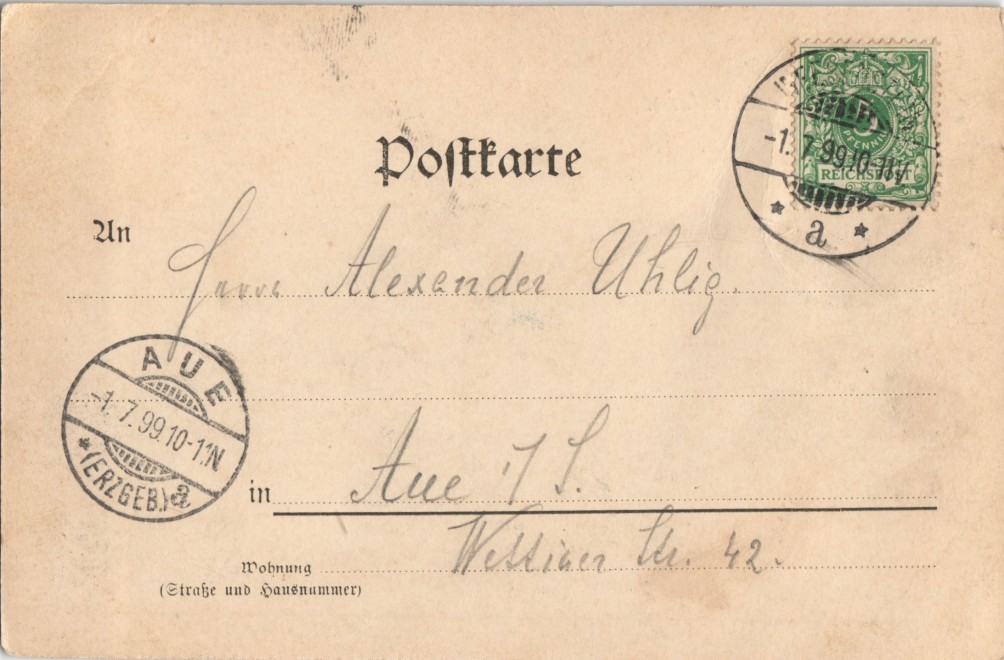 Postkarte
5
PFENNIG
REICHSPOST
-1. 7. 99. 10-11V
a
An Herrn Alexander Uhlig.
AUE
-1. 7. 99. 10-11N.
(ERZGEB.) a
in Aue i/S.
Wettiner Str. 42.
Wohnung
(Straße und Hausnummer)